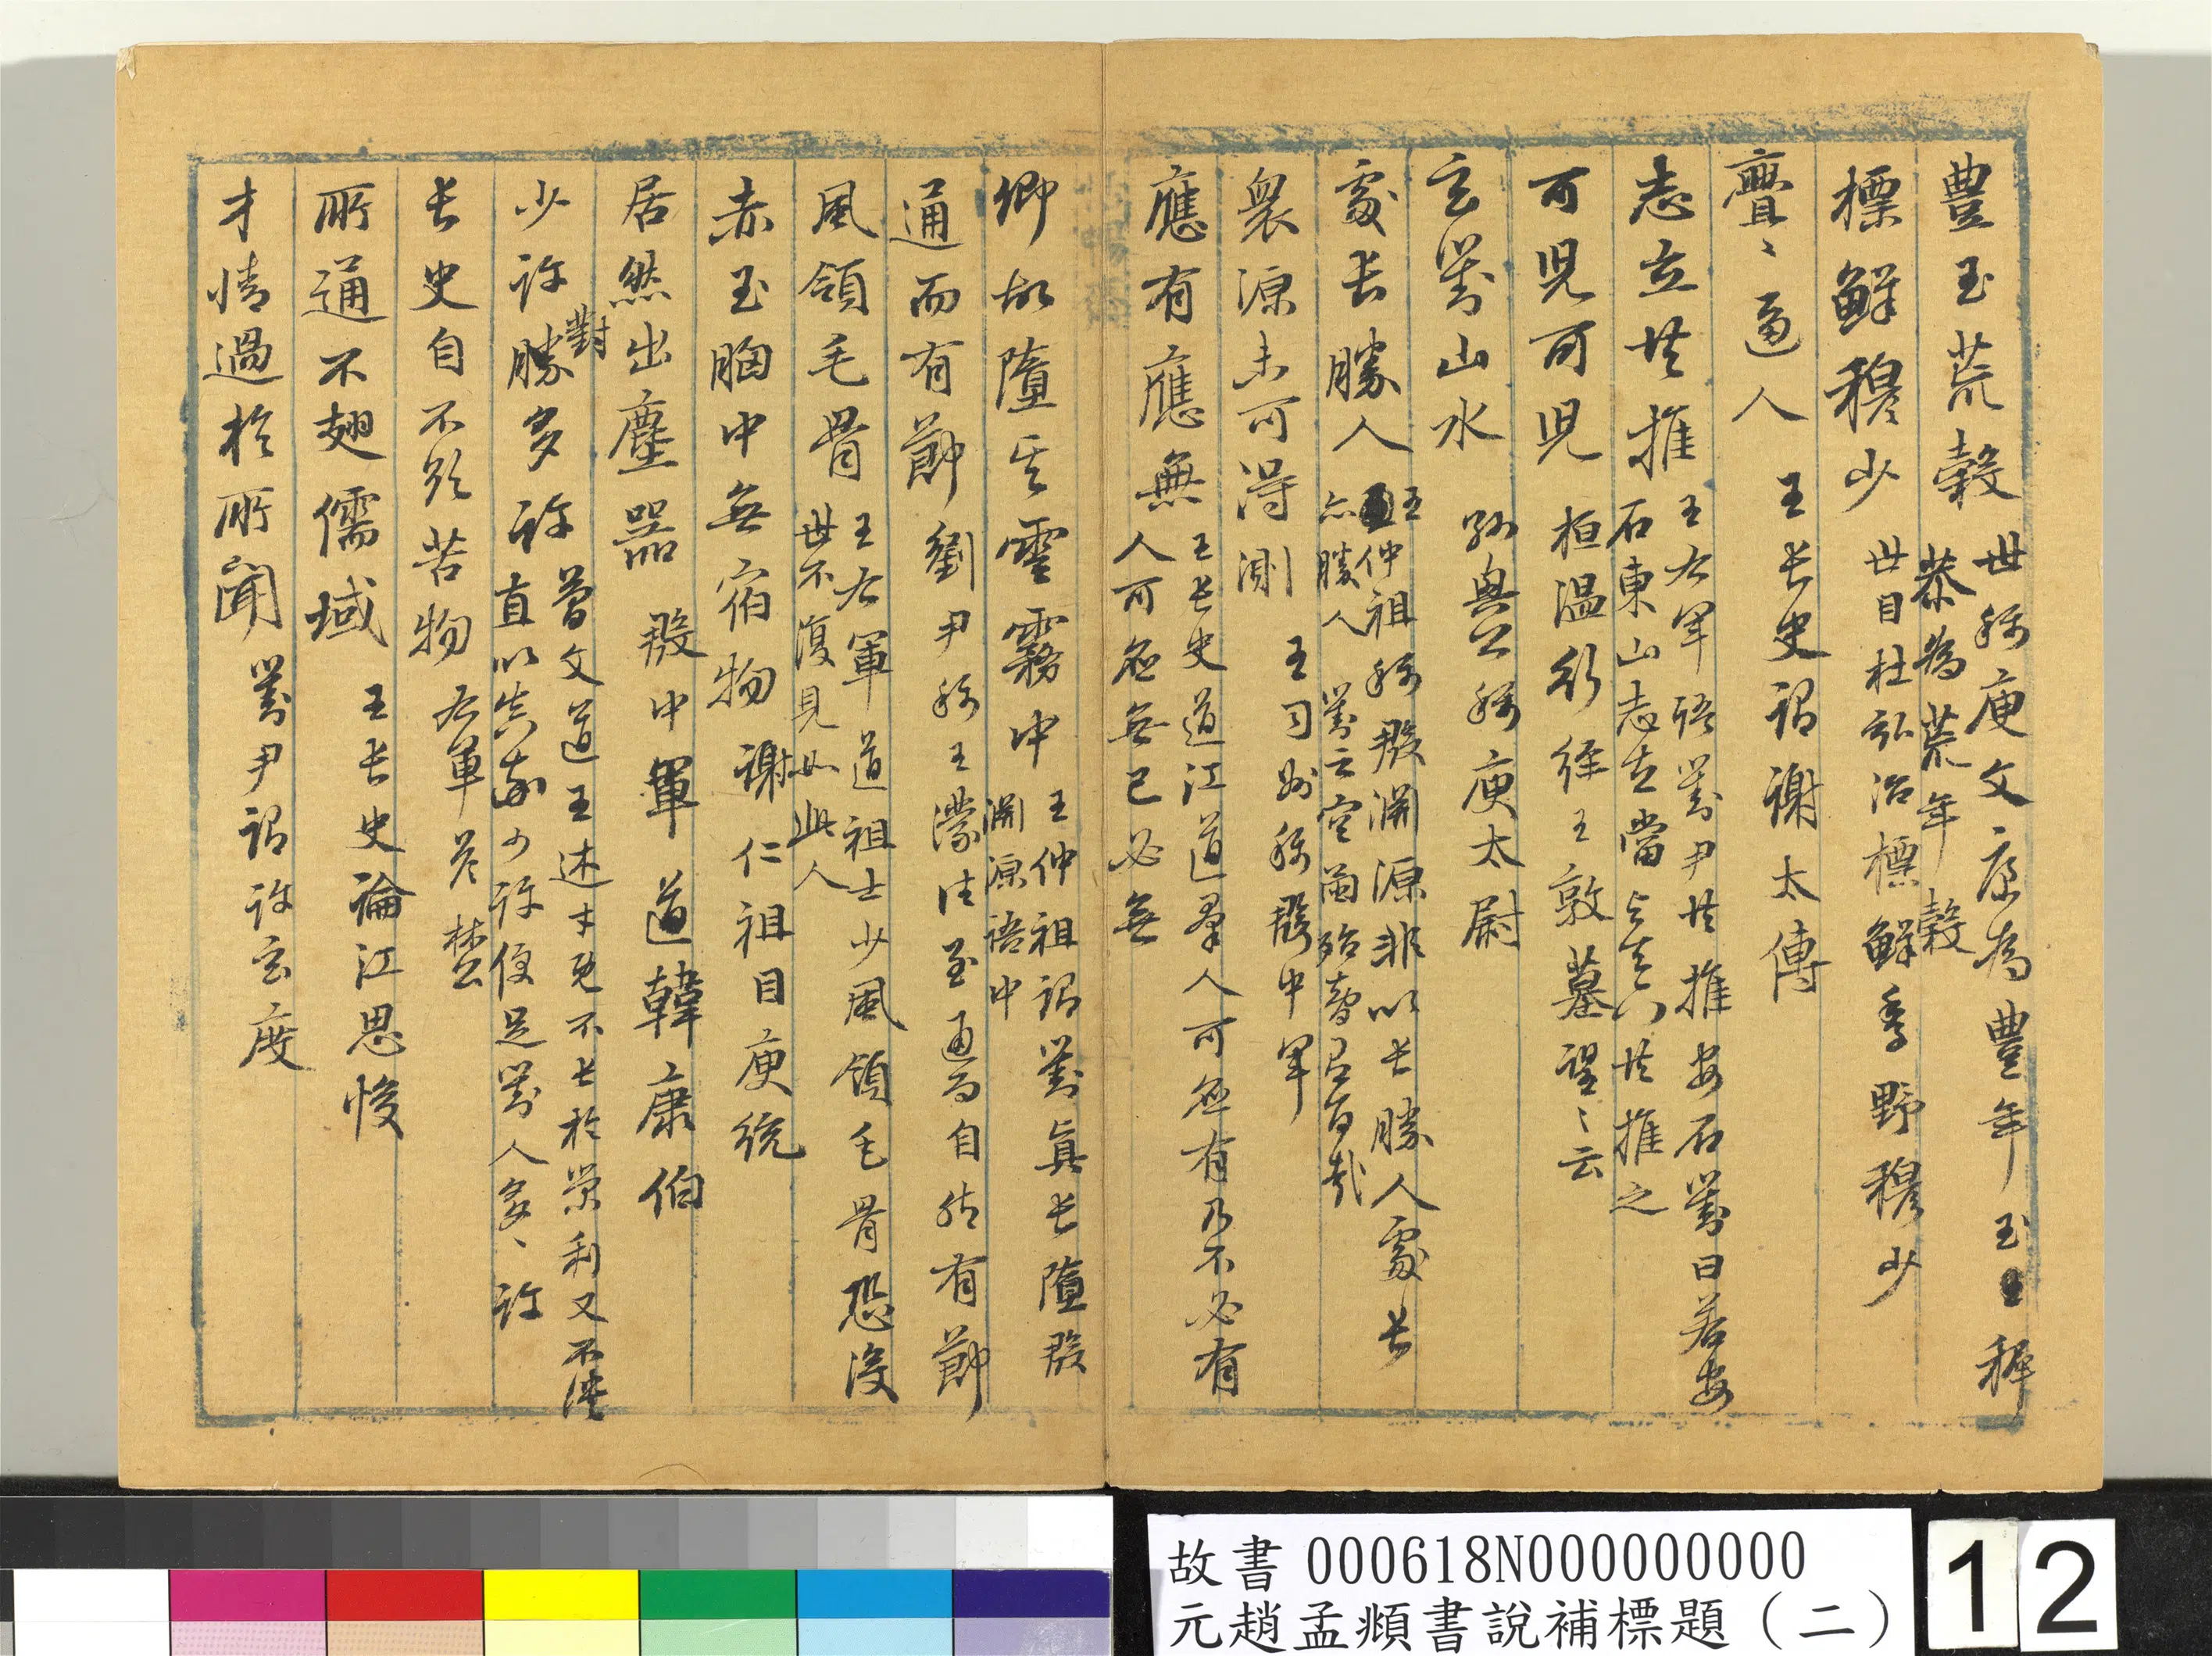 豊玉荒穀 世稱庾文康為豊年玉王稺
恭為荒年穀
標鮮穆少 世目杜弘治標鮮季野穆少
亹〻逼人 王長史謂謝太傅
志立共推 王右軍語劉尹共推安石劉曰若安
石東山志立當與天下共推之
可兒可兒 桓温行經王敦墓望〻云
玄對山水 孫興公稱庾太尉
處長勝人 王仲祖稱殷淵源非以長勝人處長
亦勝人 劉云
衆源未可得測 王司州稱殷中軍
應有應無 王長史道江道羣人可應有乃不必有
人可應無己必無
卿故墮其雲霧中 王仲祖謂劉真長墮殷
淵源語中
通而有節 劉尹稱王濛性至通而自然有節
風領毛骨 王右軍道祖士少風領毛骨恐沒
世不復見如此人
赤玉胸中無宿物 謝仁祖目庾統
居然出塵器 殷中軍道韓康伯
少許勝對多許 簡文道王述才既不長於榮利又不淡
直以真率少許便足對人多〻許
長史自不欲苦物 右軍答林公
所通不翅儒域 王長史論江思悛
才情過於所聞 劉尹謂許玄度
故書 000618N000000000
元趙孟頫書說補標題（二）
12